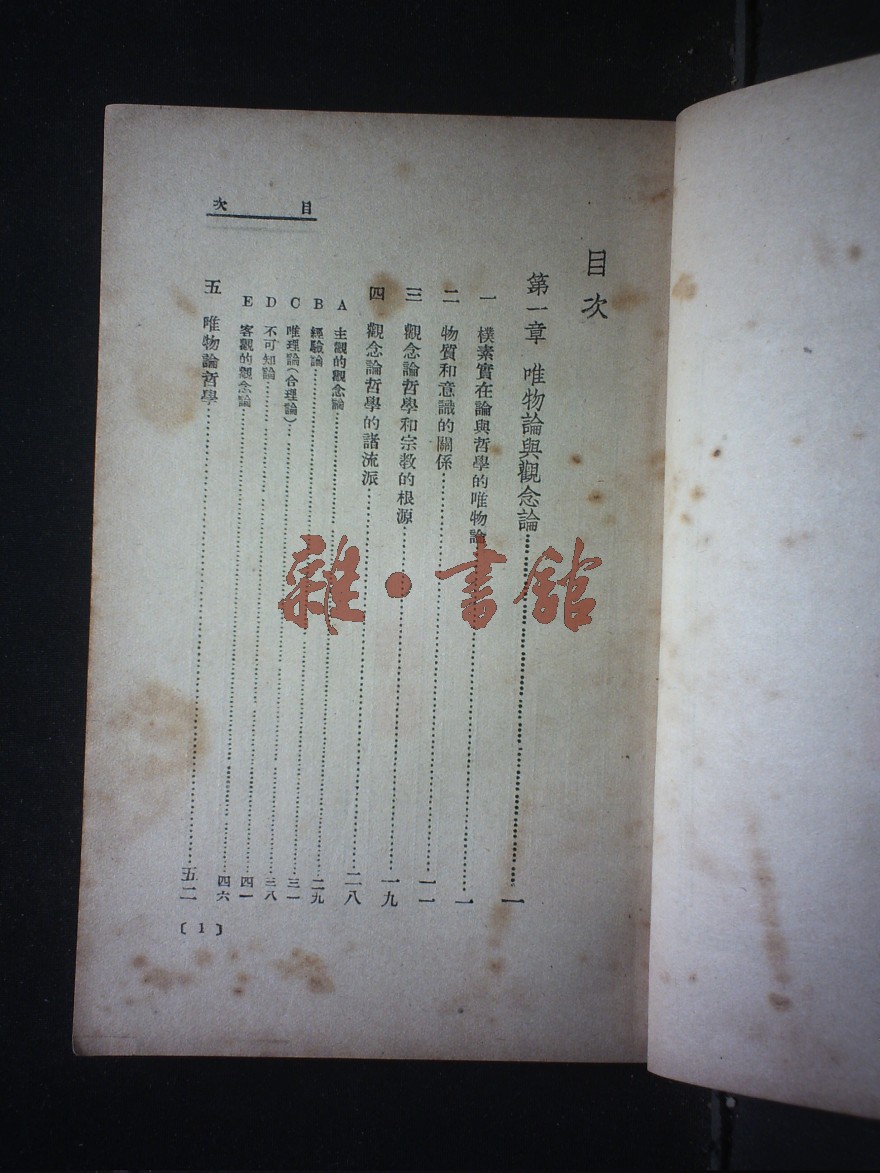 目次
目次
第一章 唯物論與觀念論……一
一 樸素實在論與哲學的唯物論……一
二 物質和意識的關係……一一
三 觀念論哲學和宗教的根源……一九
四 觀念論哲學的諸流派……二八
A 主觀的觀念論……二九
B 經驗論……三一
C 唯理論(合理論)……三八
D 不可知論……四一
E 客觀的觀念論……四六
五 唯物論哲學……五二
〔1〕
雜·書館